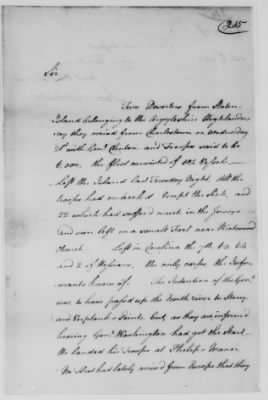 215
Sir
Two Deserters from Staten
Island belonging to the Argyleshire Highlanders
say they arrived from Charlestown on Wednesday
with Genl. Clinton and Troops said to be
6,000. the fleet consisted of 104 Vessels.
Left the Island last Tuesday Night. All the
Troops had embark'd except the Sick, and
22 which had suffered much in the
and were left in a small Fort near
Church. Left in Carolina the 7th. 63. 64
and 2 of Hessians, the only corps the Infor-
mants knows of. The Intention of the Genl.
was to have pass'd up the North river to Stony
and Verplank's Points, but, as they are inform'd
hearing Genl. Washington had got the Start
He landed his Troops at Philip's Manor
No Fleet had lately arriv'd from Europe that they